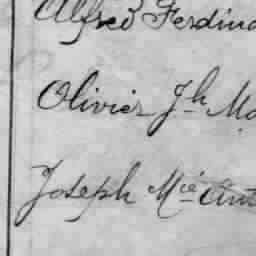 Alfred Ferdina
Olivier Jh Mo
Joseph Mie Ant